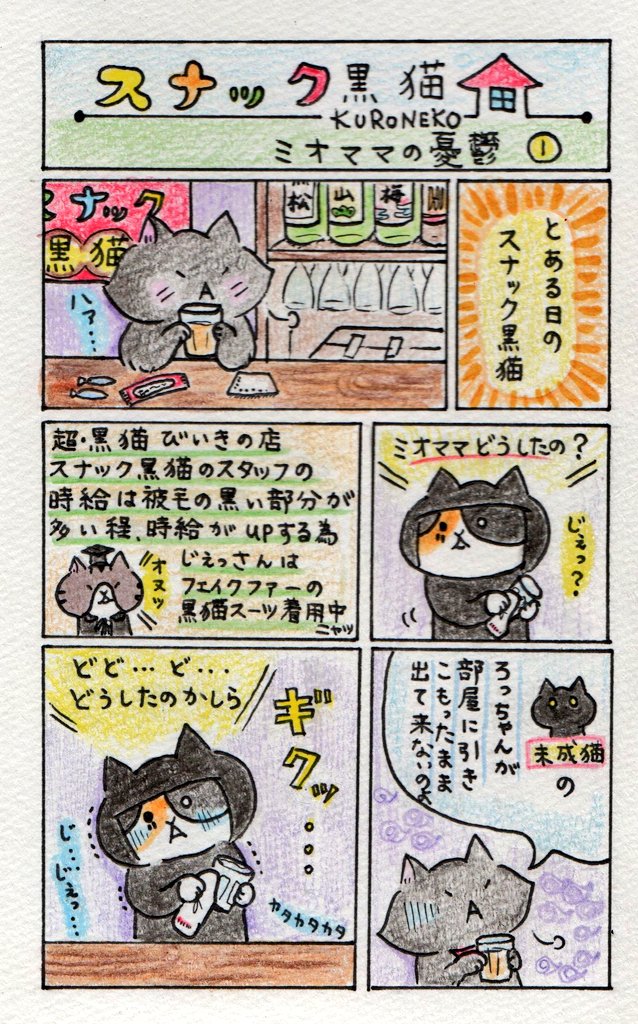 スナック黒猫
KURONEKO
ミオママの憂鬱 1
とある日の
スナック黒猫
スナック
黒猫
黒松
山
梅
ハァ…
ミオママどうしたの?
じぇっ?
超・黒猫びいきの店
スナック黒猫のスタッフの
時給は被毛の黒い部分が
多い程、時給がUPする為
じぇっさんは
フェイクファーの
黒猫スーツ着用中
オヌッ
ニャッ
未成猫
の
ろっちゃんが
部屋に引き
こもったまま
出て来ないのよ
どど…ど…
どうしたのかしら
ギクッ…
じ…
じぇっ…
カタカタカタ